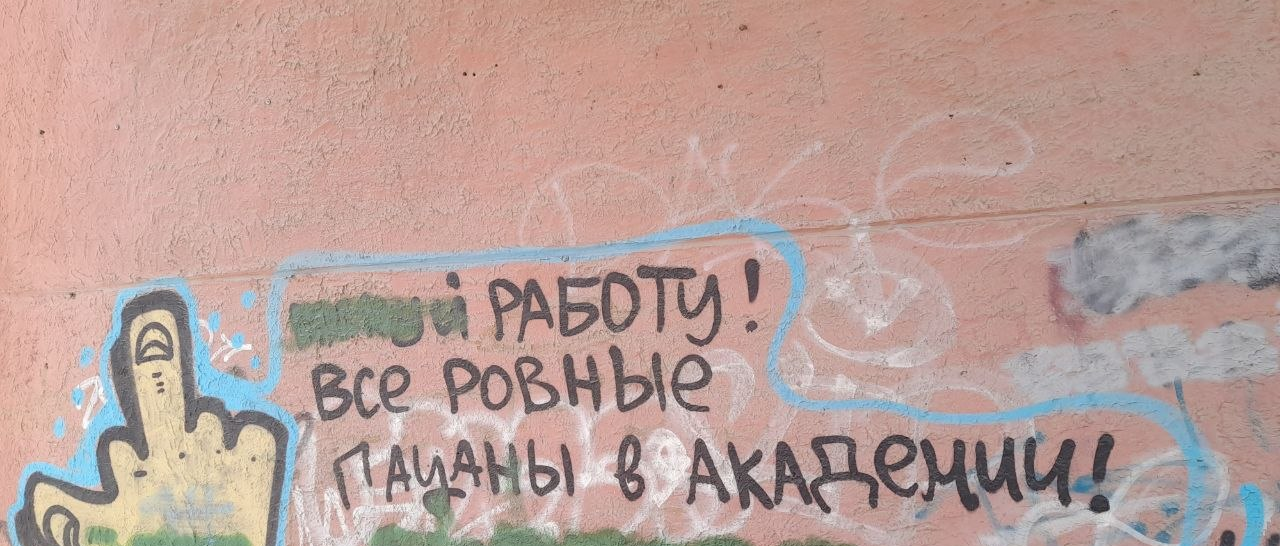 РАБОТУ!
ВСЕ РОВНЫЕ
ПАЦАНЫ В АКАДЕМИИ!